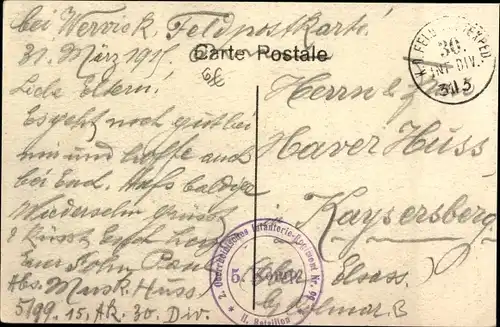 bei Wervick. Feldpostkarte!
31. März 1915.
Carte Postale
Liebe Eltern!
Es geht noch gut bei
mir und hoffe auch
bei Euch. Aufs baldige
Wiedersehn grüsst
& küsst Euch
Euer Sohn Paul
Abs. Musk. Huss
5/99. 15. Ak. 30. Div.
Herrn
Xaver Huss
Kaysersberg
Ober Elsass
b/ Colmar.
K.D. FELD EXPED.
30.
INF. DIV.
313
2. Oberrheinisches Infanterie-Regiment Nr. 99
5. Komp.
II. Bataillon